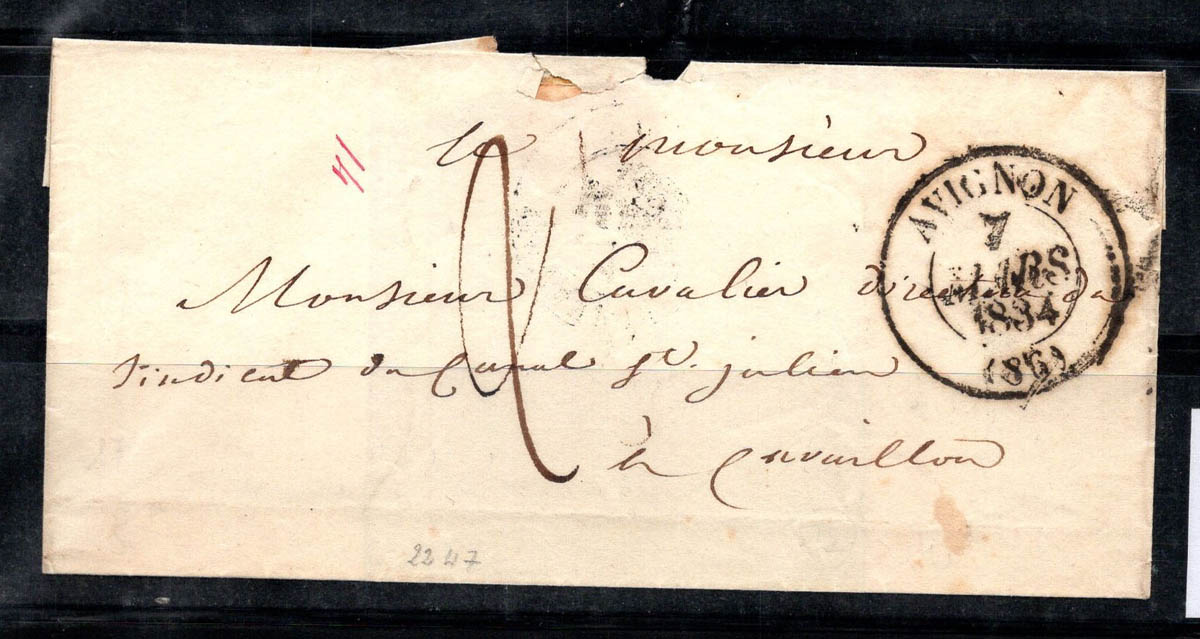 71
a monsieur
AVIGNON
7
MARS
1834
(86)
Monsieur Cavalier directeur du
sindicat du Canal St. julien
à Cavaillon
2
2247